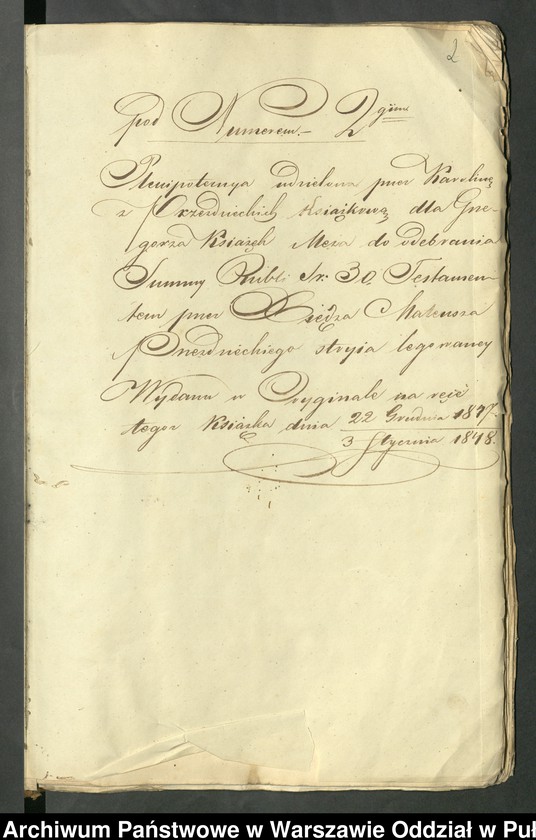 2
pod Numerem 2gim
Plenipotencya udzielona przez Karolinę
z Przezdzieckich Książkową dla Grze-
gorza Książek Męża do odebrania
Summy Rubli Sr: 30. Testamen-
tem przez Xiędza Mateusza
Przezdzieckiego stryia legowaney
Wydana w Oryginale na ręce
tegoż Książka dnia 22 Grudnia 1847.
3 Stycznia 1848.
Archiwum Państwowe w Warszawie Oddział w Puł